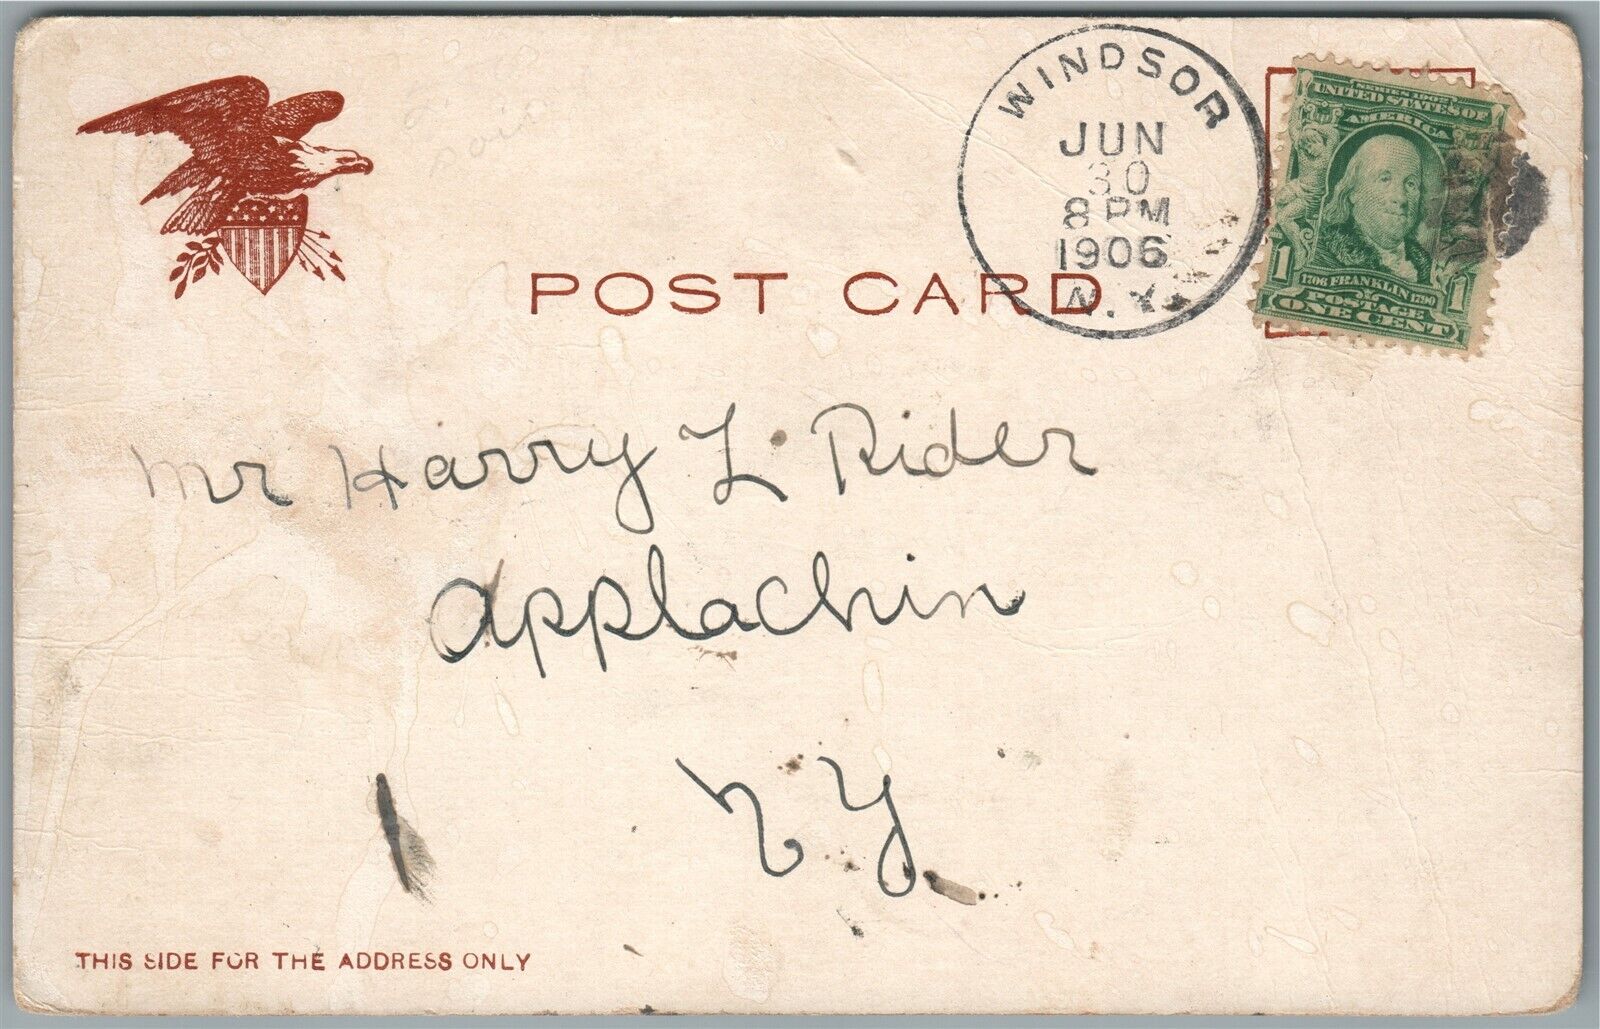 WINDSOR
JUN
30
8 PM
1906
N.Y.
SERIES 1902
UNITED STATES OF
AMERICA
1 1706 FRANKLIN 1790 1
POSTAGE
ONE CENT
POST CARD
Mr Harry L. Rider
Applachin
NY
THIS SIDE FOR THE ADDRESS ONLY